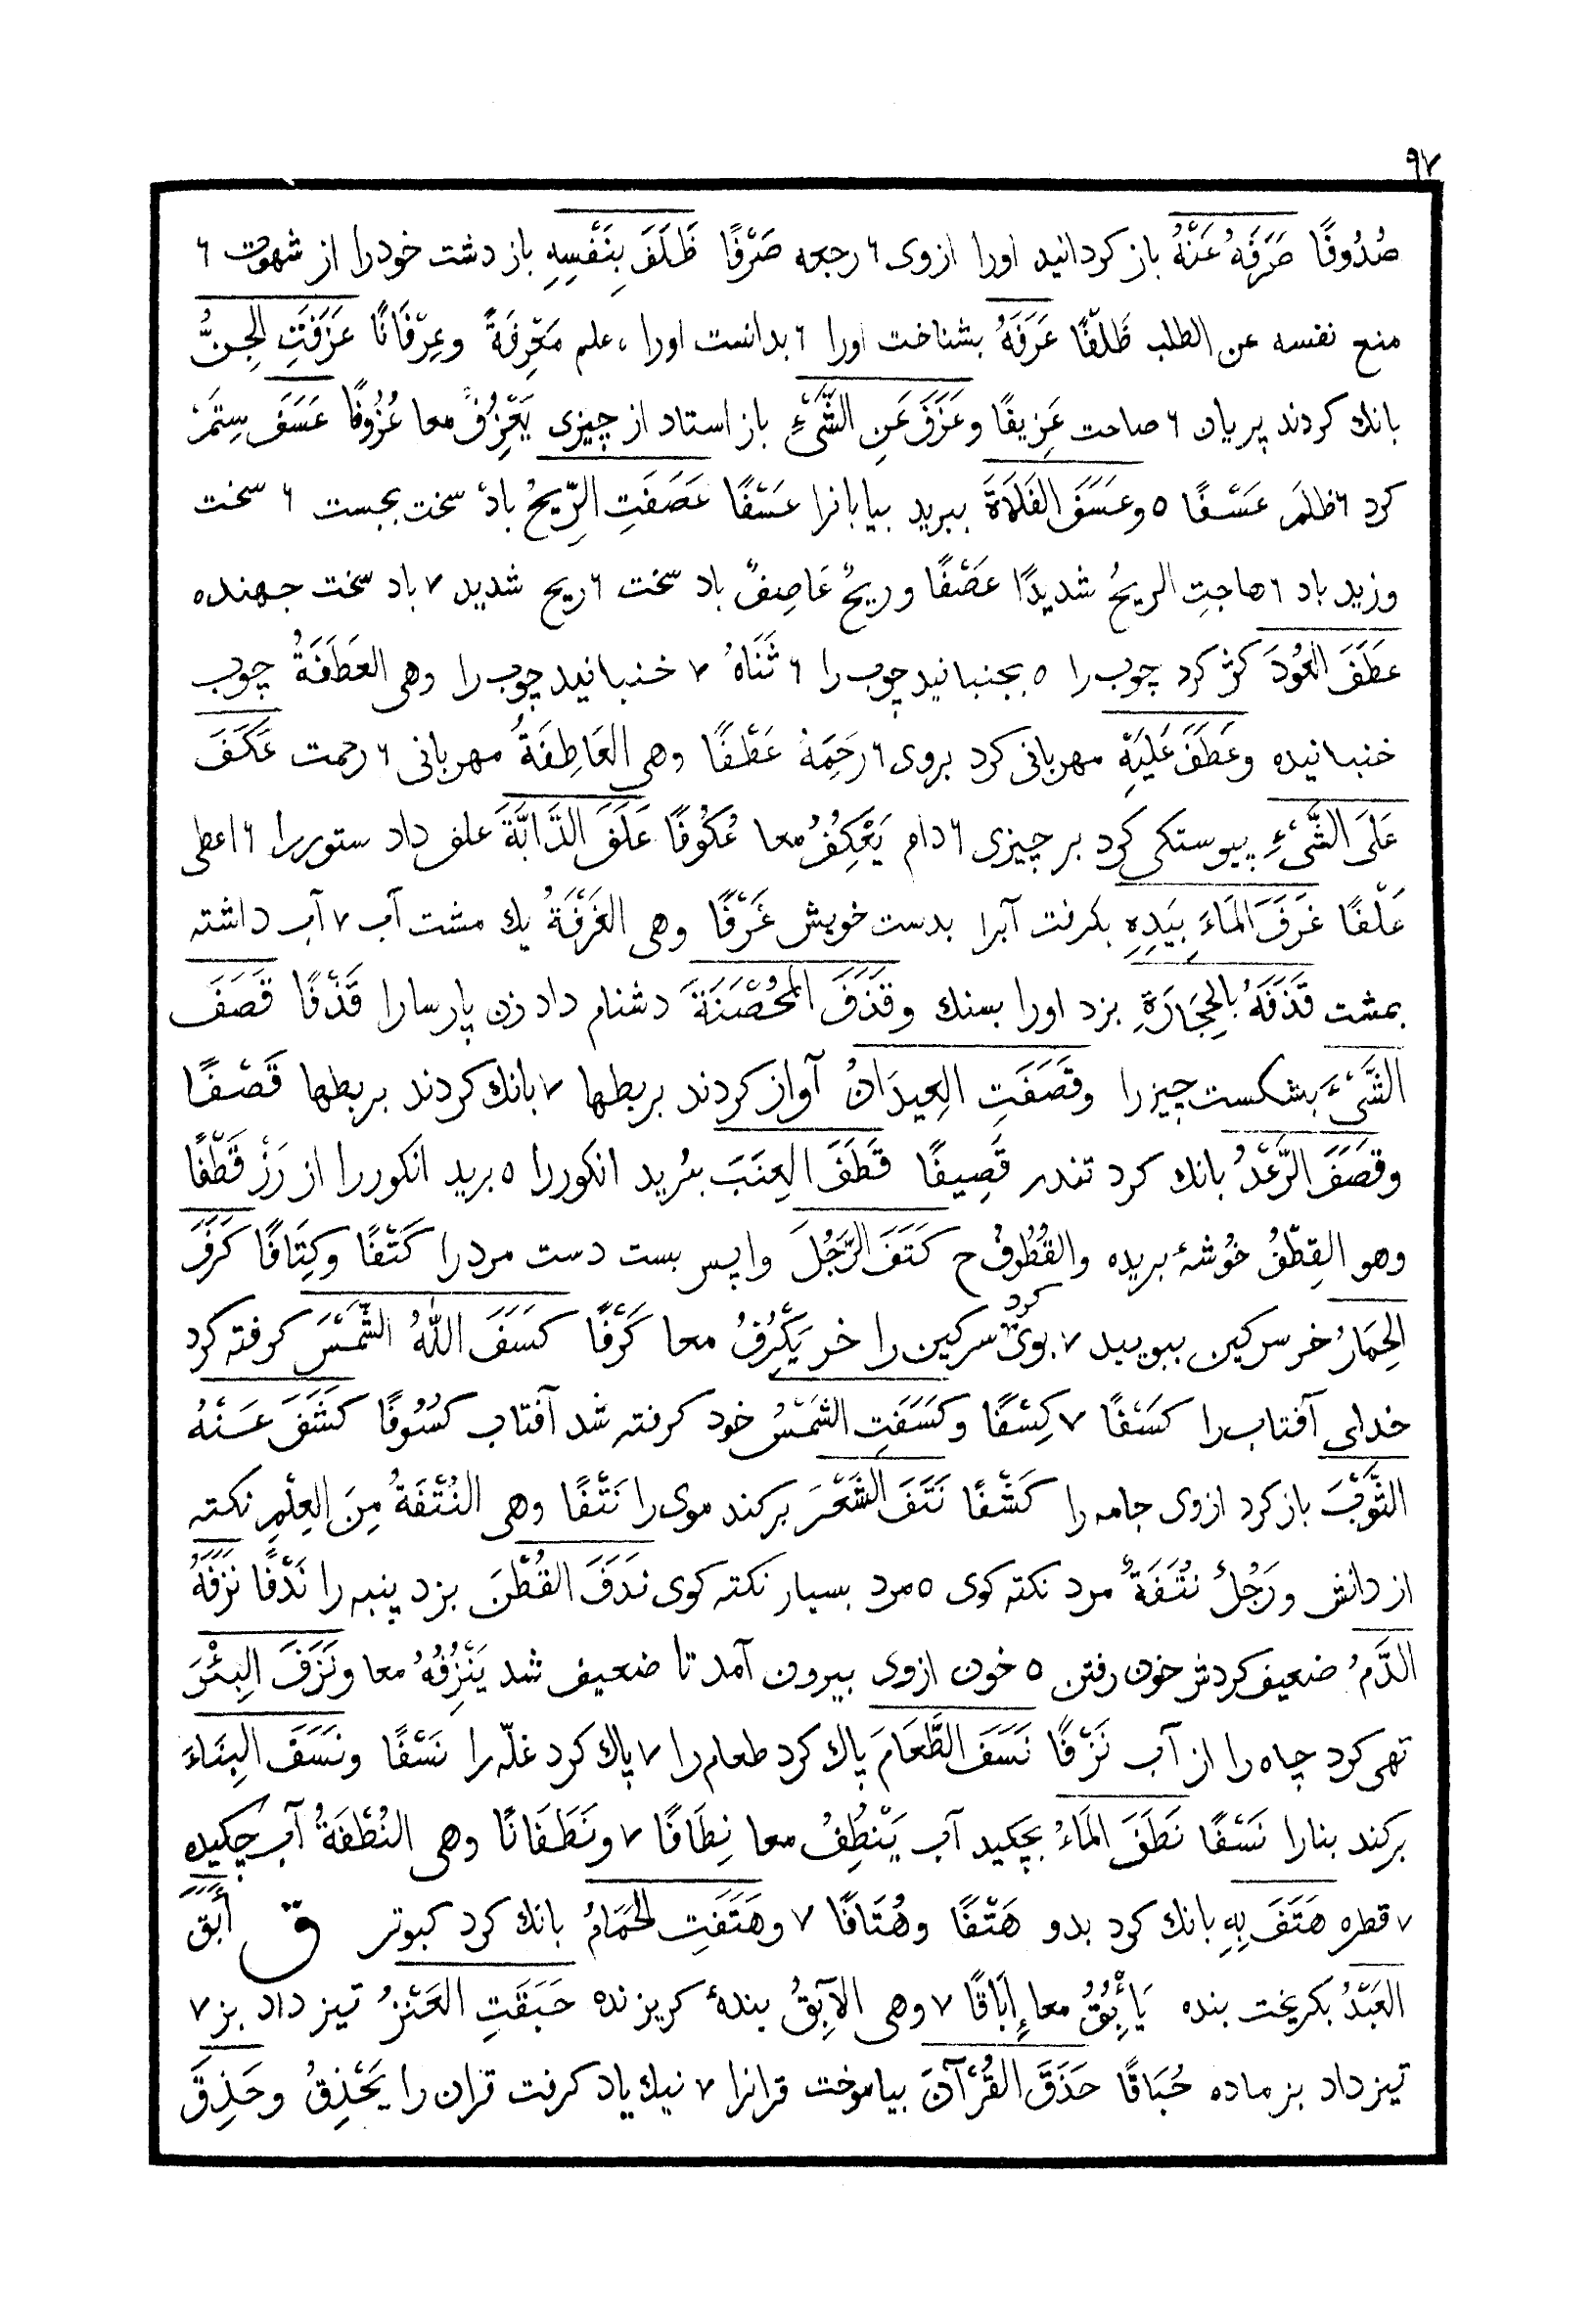 ٩٧
صُدُوفًا صَرَفَهُ عَنْهُ باز كردانيد اورا ازوى ٦ رجعه صَرْفًا ظَلَفَ بِنَفْسِهِ باز دشت خود را از شهوت ٦
منع نفسه عن الطلب ظَلْفًا عَرَفَهُ بشناخت اورا ٦ بدانست اورا ، علم مَعْرِفَةً وعِرْفَانًا عَزَفَتِ الجِنُّ
بانك كردند پريان ٦ صاحت عَزِيفًا وعَزَفَ عَنِ الشَّىْءِ باز استاد از چيزى يَعْزِفُ معا عُزُوفًا عَسَفَ سِتَمْ
كرد ٦ ظلَمَ عَسْفًا ٥ وعَسَفَ الفَلَاةَ ببريد بيابانرا عَسْفًا عَصَفَتِ الرِّيحُ بادْ سخت بجست ٦ سخت
وزيد باد ٦ هاجتِ الريحُ شديدًا عَصْفًا وريحٌ عَاصِفٌ باد سخت ٦ ريح شديد ٧ باد سخت جهنده
عَطَفَ العُودَ كژ كرد چوب را ٥ بجنبانيد چوب را ٦ ثَنَاهُ ٧ خنبانيد چوب را وهى العَطَفَةُ چوب
خنبانيده وعَطَفَ عَلَيْهِ مهربانى كرد بروى ٦ رَحِمَهُ عَطْفًا وهى العَاطِفَةُ مهربانى ٦ رحمت عَكَفَ
عَلَى الشَّىْءِ پيوستكى كرد بر چيزى ٦ دام يَعْكِفُ معا عُكُوفًا عَلَفَ الدَّابَّةَ علف داد ستوررا ٦ اعطى
عَلْفًا غَرَفَ المَاءَ بِيَدِهِ بكرفت آبرا بدست خويش غَرْفًا وهى الغَرْفَةُ يك مشت آب ٧ آب داشته
بمشت قَذَفَهُ بِالحِجَارَةِ بزد اورا بسنك وقَذَفَ المُحْصَنَةَ دشنام داد زن پارسارا قَذْفًا قَصَفَ
الشَّىْءَ بشكست چيز را وقَصَفَتِ العِيدَانُ آواز كردند بربطها ٧ بانك كردند بربطها قَصْفًا
وقصَفَ الرَّعْدُ بانك كرد تندر قَصِيفًا قَطَفَ العِنَبَ ببُريد انكوررا ٥ بريد انكوررا از رَزْ قَطْفًا
وهو القِطْفُ خُوشۀ بريده والقُطُوفُ ح كَتَفَ الرَّجُلَ واپس بست دست مرد را كَتْفًا وكِتَافًا كَرَفَ
الحِمَارُ خر سركين ببوييد ٧ بوى كرد سركين را خر يَكْرِفُ معا كَرْفًا كسَفَ اللّٰهُ الشَّمْسَ كرفته كرد
خداى آفتاب را كسَفْا ٧ كِسْفًا وكَسَفَتِ الشَّمْسُ خود كرفته شد آفتاب كسُوفًا كشَفَ عَنْهُ
الثَّوْبَ باز كرد ازوى جامه را كَشْفًا نَتَفَ الشَّعْرَ بركند موى را نَتْفًا وهى النُتْفَةُ مِنَ العِلْمِ نكته
از دانش ورَجُلٌ نُتَفَةٌ مرد نكته كوى ٥ مرد بسيار نكته كوى نَدَفَ القُطْنَ بزد پنبه را نَدْفًا نَزَفَهُ
الدَّمُ ضعيف كردش خون رفتن ٥ خون ازوى بيرون آمد تا ضعيف شد يَنْزِفُهُ معا ونَزَفَ البِئْرَ
تهى كرد چاه را از آب نَزْفًا نَسَفَ الطَّعَامَ پاك كرد طعام را ٧ پاك كرد غلّه را نَسْفًا ونسَفَ البِنَاءَ
بركند بنارا نَسْفًا نَطَفَ المَاءُ بچكيد آب يَنْطِفُ معا نِطَافًا ٧ ونَطَفَانًا وهى النُطْفَةُ آب چكيده
٧ قطره هتَفَ بِهِ بانك كرد بدو هَتْفًا وهُتَافًا ٧ وهَتَفَتِ الحَمَامُ بانك كرد كبوتر ق أَبَقَ
العَبْدُ بكريخت بنده يَأْبِقُ معا إِبَاقًا ٧ وهى الآبِقُ بندۀ كريزنده حَبَقَتِ العَنْزُ تيز داد بز ٧
تيز داد بز ماده حُبَاقًا حَذَقَ القُرْآنَ بياموخت قرانرا ٧ نيك ياد كرفت قران را يَحْذِقُ وحَذِقَ